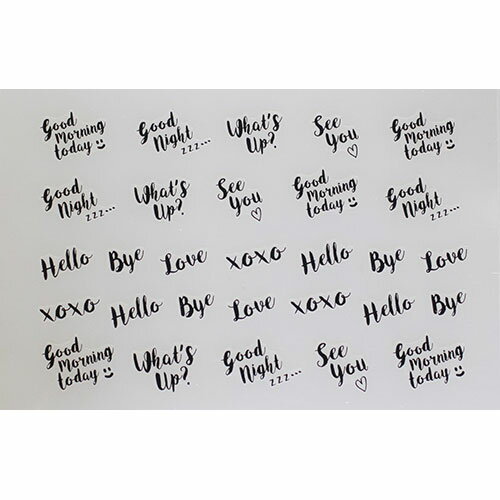 Good Morning today Good Night zzz... What's Up? See You Good Morning today
Good Night zzz... What's Up? See You Good Morning today Good Night zzz...
Hello Bye Love xoxo Hello Bye Love
xoxo Hello Bye Love xoxo Hello Bye
Good Morning today What's Up? Good Night zzz... See You Good Morning today